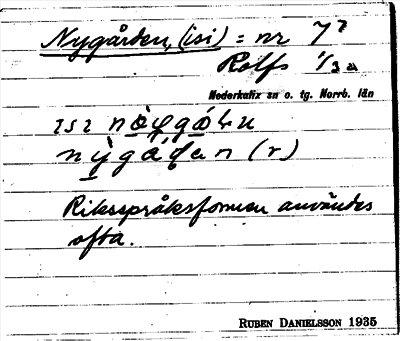 Nygården, (isi) = nr 7²
Rolfs 1/3 a
Nederkalix sn o. tg. Norrb. län
ısı
(r)
Riksspråksformen användes
ofta.
RUBEN DANIELSSON 1935